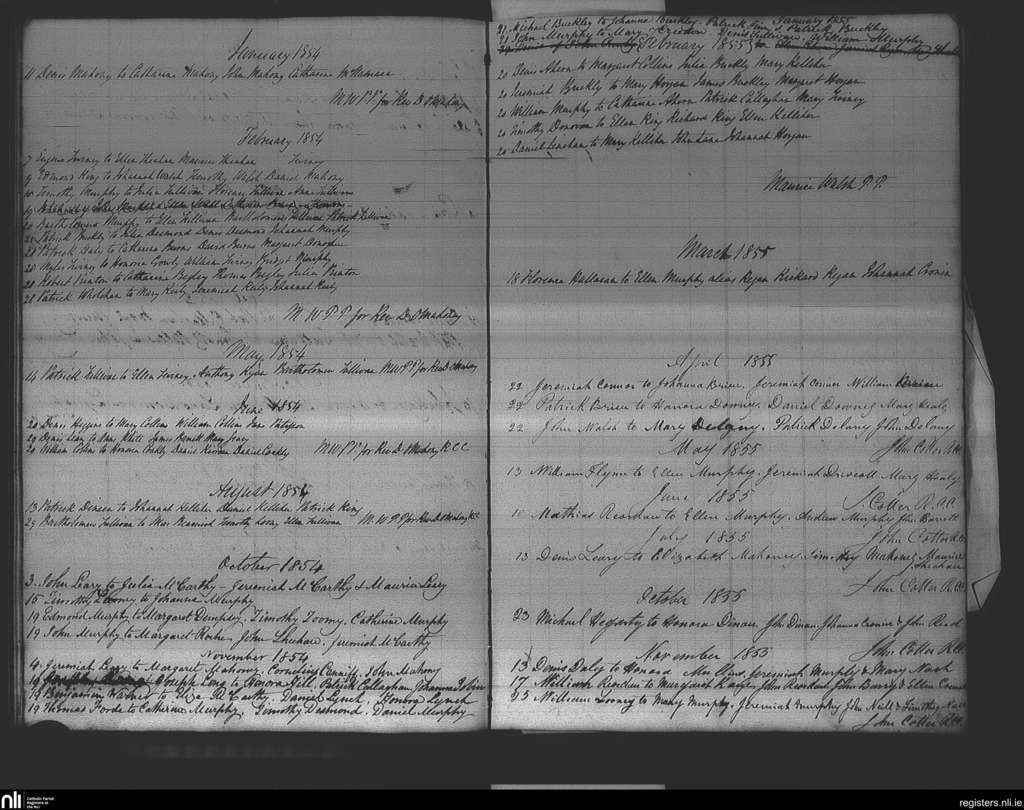 January 1854
11 Denis Mahony to Catharine Mahony John Mahony Catharine McNamara
M W P P for Rev D O Mahony
February 1854
7 Eugene Turney to Ellen Sheehan Maurice Sheehan Turney
9 Edmond King to Johannah Walsh Timothy Walsh Daniel Mahony
10 Timothy Murphy to Julia Sullivan Florence Sullivan Ann Sullivan
20 Bartholomew Murphy to Ellen Sullivan Bartholomew Sullivan Patrick Sullivan
21 Patrick Buckly to Julia Desmond Denis Desmond Johannah Murphy
28 Patrick Daly to Catharine Burns David Burns Margaret Donoghue
28 Myles Turney to Honora Crowly William Turney Bridget Murphy
28 Robert Brinton to Catharine Begley Thomas Begley Julia Brinton
28 Patrick Wholehan to Mary Keily Jeremiah Keily Johannah Keily
M W P P for Rev D O Mahony
May 1854
14 Patrick Sullivan to Ellen Turney Anthony Ryan Bartholomew Sullivan M W P P for Rev D O Mahony
June 1854
20 Denis Higgins to Mary Collins William Collins Jane
29 Denis Leary to Ann White James Barrett Mary Leary
20 William Collins to Honora Coakly Daniel Daniel Coakly M W P P for Rev D O Mahony R C C
August 1854
13 Patrick Dineen to Johannah Kelliher Daniel Kelliher Patrick King
29 Bartholomew Sullivan to Timothy Ellen Sullivan M W P P for Rev D O Mahony R C C
October 1854
3. John Leary to Julia McCarthy - Jeremiah McCarthy & Maurice Leary
15 Timothy Looney to Johanna Murphy
19 Edmond Murphy to Margaret Dempsey, Timothy Toomy, Catherine Murphy
19 John Murphy to Margaret John Sheehan, Jeremiah McCarthy
November 1854
4. Jeremiah Leary to Margaret Mahony, Cornelius Cunniff, John Mahony
19 Joseph Long to Honora Hill Patrick Callaghan Johanna Tobin
19 Benjamin Warner to Eliza McCarthy Daniel Lynch, Honora Lynch
19 Thomas Forde to Catherine Murphy, Timothy Desmond, Daniel Murphy
January 1855
21 Michael Buckley to Johanna Buckley. Patrick & Patrick Buckley
21 John Murphy to Mary Denis Sullivan, William Murphy
February 1855
20 Denis Ahern to Margaret Collins Julia Buckly Mary Kelleher
20 Jeremiah Buckly to Mary Horgan James Buckly Margaret Horgan
20 William Murphy to Catharine Ahern Patrick Callaghan Mary Turney
20 Timothy Donovan to Ellen King Richard King Ellen Kelliher
20 Daniel Lenehan to Mary Kelliher Johannah Horgan
Maurice Walsh P.P.
March 1855
18 Florence Hallasan to Ellen Murphy alias Regan Richard Regan Johannah Cronin
April 1855
22 Jeremiah Connor to Johanna Brien. Jeremiah Connor William
22 Patrick Brien to Honora Downey. Daniel Downey Mary Healy
22 John Walsh to Mary Delany. Patrick Delany John Delany
John Cotter R.C.C.
May 1855
13 William Flynn to Ellen Murphy. Jeremiah Driscoll Mary Healy
J. Cotter R.C.C.
June 1855
10 Mathias Reardan to Ellen Murphy. Andrew Murphy John Barrett
John Cotter R.C.C.
July 1855
13 Denis Leary to Elizabeth Mahoney Timothy Mahoney Maurice
Sheehan
John Cotter R.C.C.
October 1855
23 Michael Hegarty to Honora Dinan John Dinan Johanna Connor & John Read
John Cotter R.C.C.
November 1855
13 Denis Daly to Honora Jeremiah Murphy & Mary Nash
17 William Reardon to Margaret John Reardon John Barry & Ellen
25 William Looney to Mary Murphy Jeremiah Murphy John Neill & Timothy
John Cotter R.C.C.
nli
Catholic Parish
Registers at
the NLI
registers.nli.ie